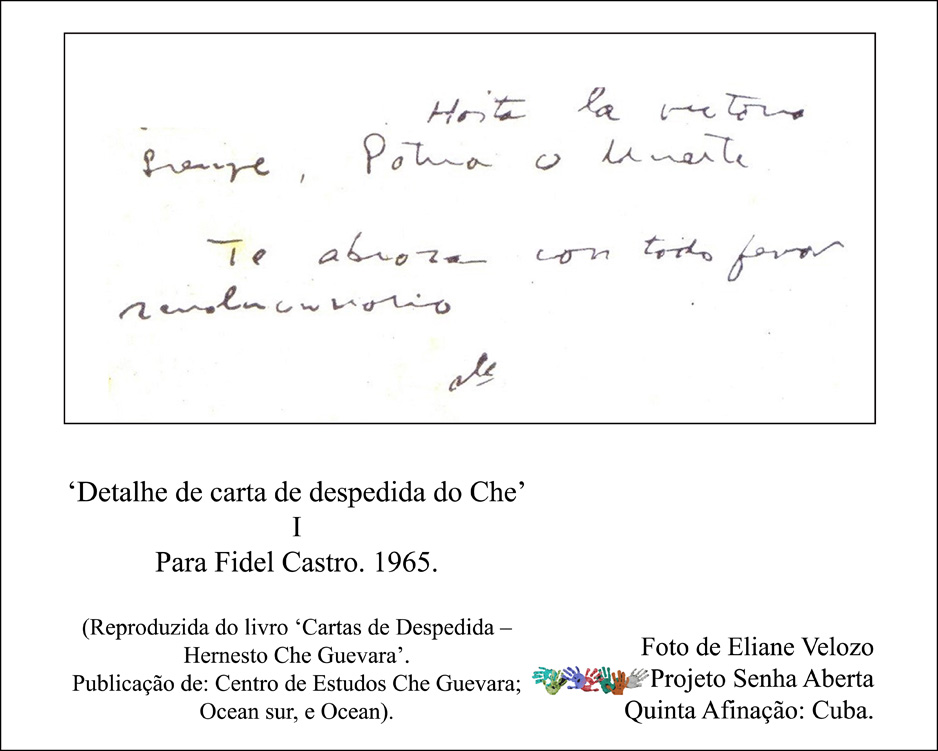 Hasta la victoria
siempre, Patria o Muerte
Te abraza con todo fervor
revolucionario
Che
‘Detalhe de carta de despedida do Che’
I
Para Fidel Castro. 1965.
(Reproduzida do livro ‘Cartas de Despedida –
Hernesto Che Guevara’.
Publicação de: Centro de Estudos Che Guevara;
Ocean sur, e Ocean).
Foto de Eliane Velozo
Projeto Senha Aberta
Quinta Afinação: Cuba.